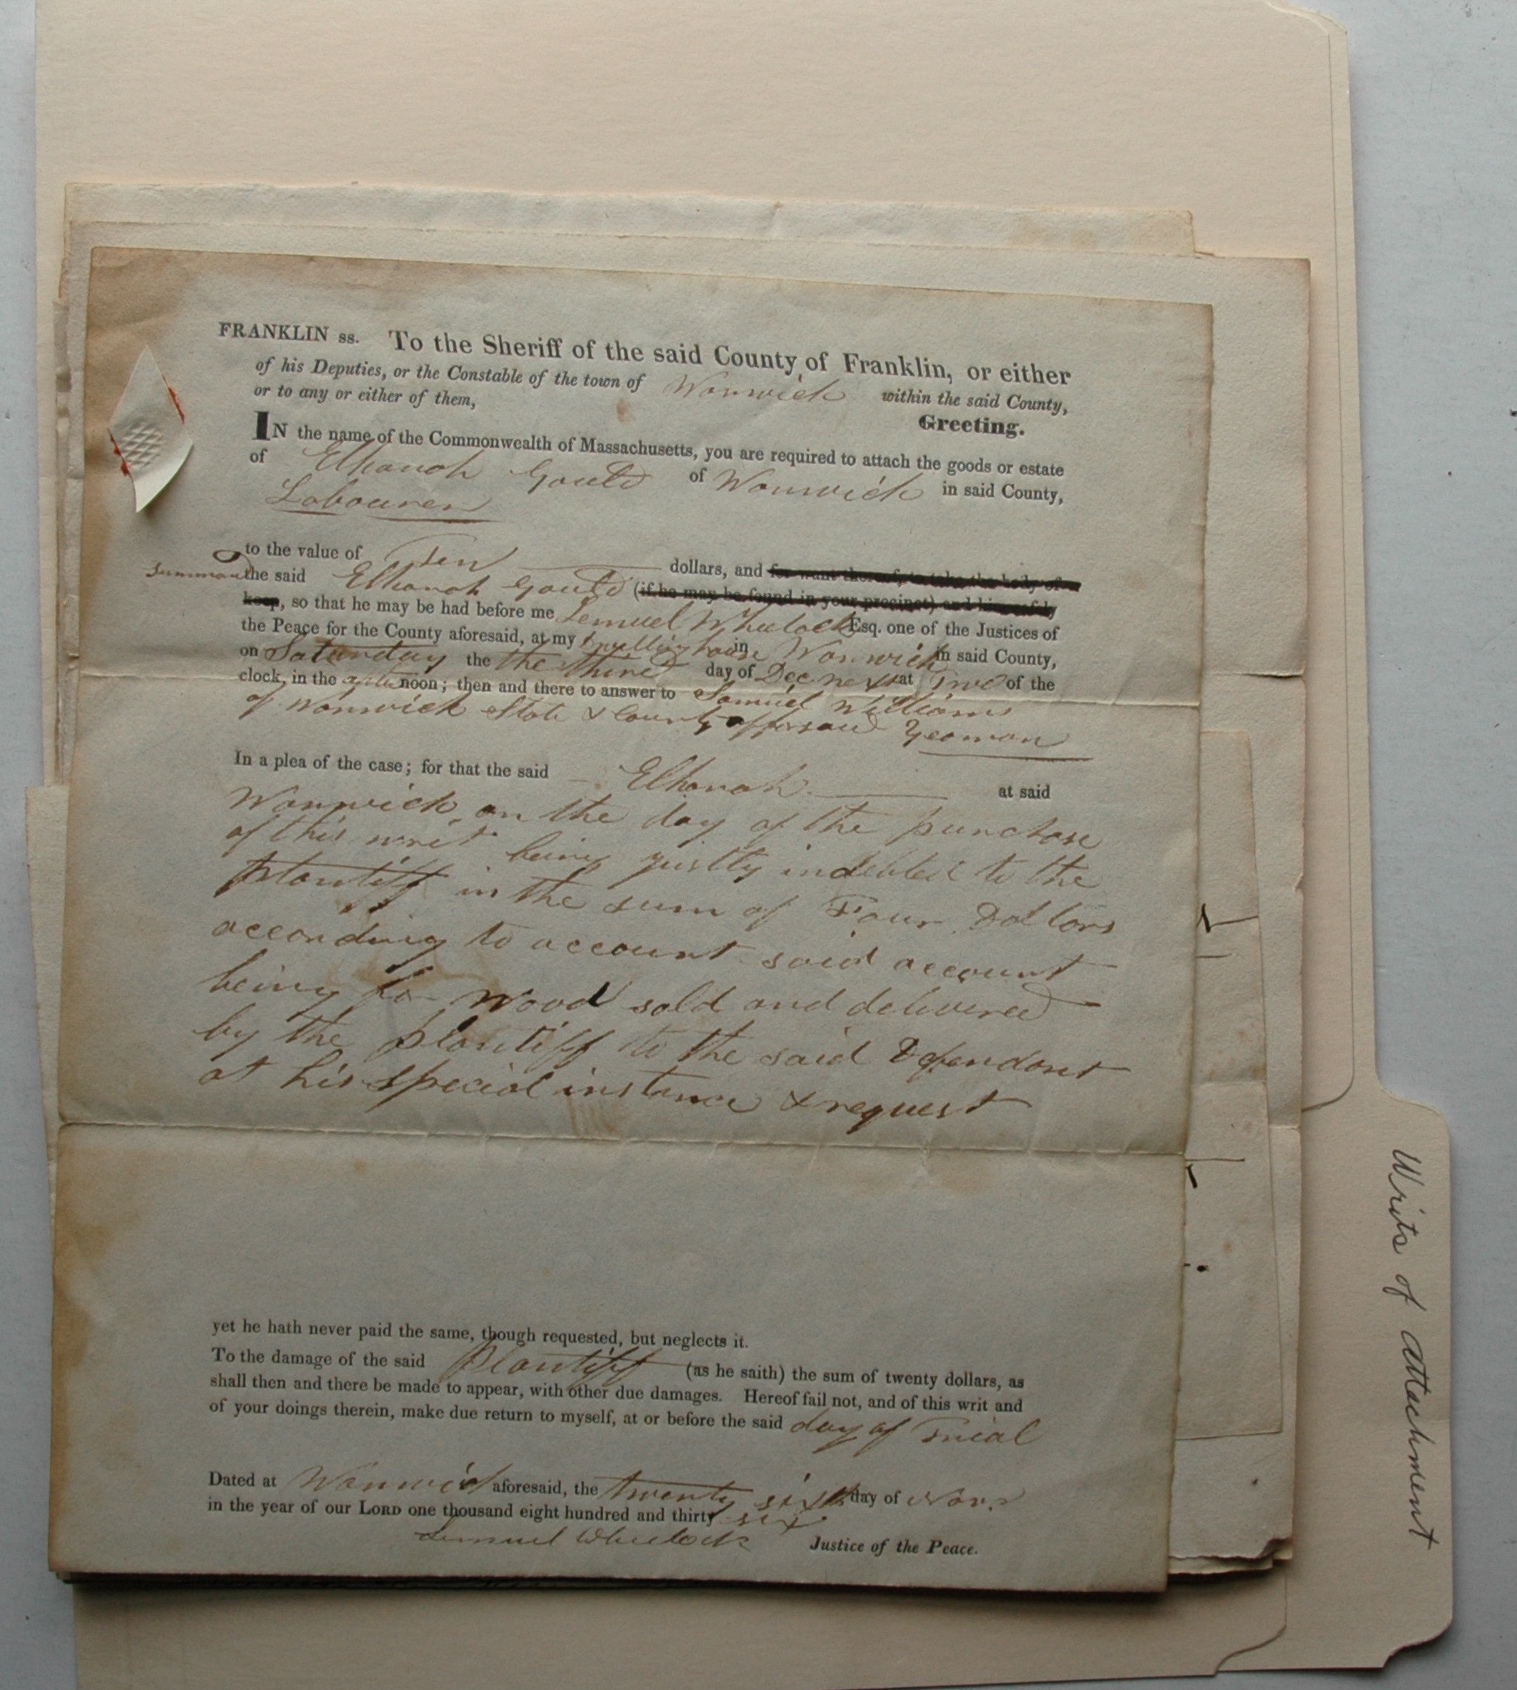 FRANKLIN ss. To the Sheriff of the said County of Franklin, or either
of his Deputies, or the Constable of the town of Warwick within the said County,
or to any or either of them,
Greeting.
IN the name of the Commonwealth of Massachusetts, you are required to attach the goods or estate
of Elkanah Gould of Warwick in said County,
Labourer
to the value of Ten dollars, and for want thereof, to take the body of
summon the said Elkanah Gould (if he may be found in your precinct) and him safely
keep, so that he may be had before me Lemuel Wheelock Esq. one of the Justices of
the Peace for the County aforesaid, at my dwelling house in Warwick in said County,
on Saturday the the third day of Dec next at Two of the
clock, in the after noon; then and there to answer to Samuel Williams
of Warwick State & County afforsaid Yeoman
In a plea of the case; for that the said Elkanah at said
Warwick on the day of the purchase
of this writ being justly indebted to the
Plantiff in the sum of Four Dollars
according to account said account
being for Wood sold and delivered
by the plantiff to the said Defendant
at his special instance & request
yet he hath never paid the same, though requested, but neglects it.
To the damage of the said Plantiff (as he saith) the sum of twenty dollars, as
shall then and there be made to appear, with other due damages. Hereof fail not, and of this writ and
of your doings therein, make due return to myself, at or before the said day of Trial
Dated at Warwick aforesaid, the twenty sixth day of Nov.
in the year of our LORD one thousand eight hundred and thirty six
Lemuel Wheelock Justice of the Peace.
Writs of Attachment